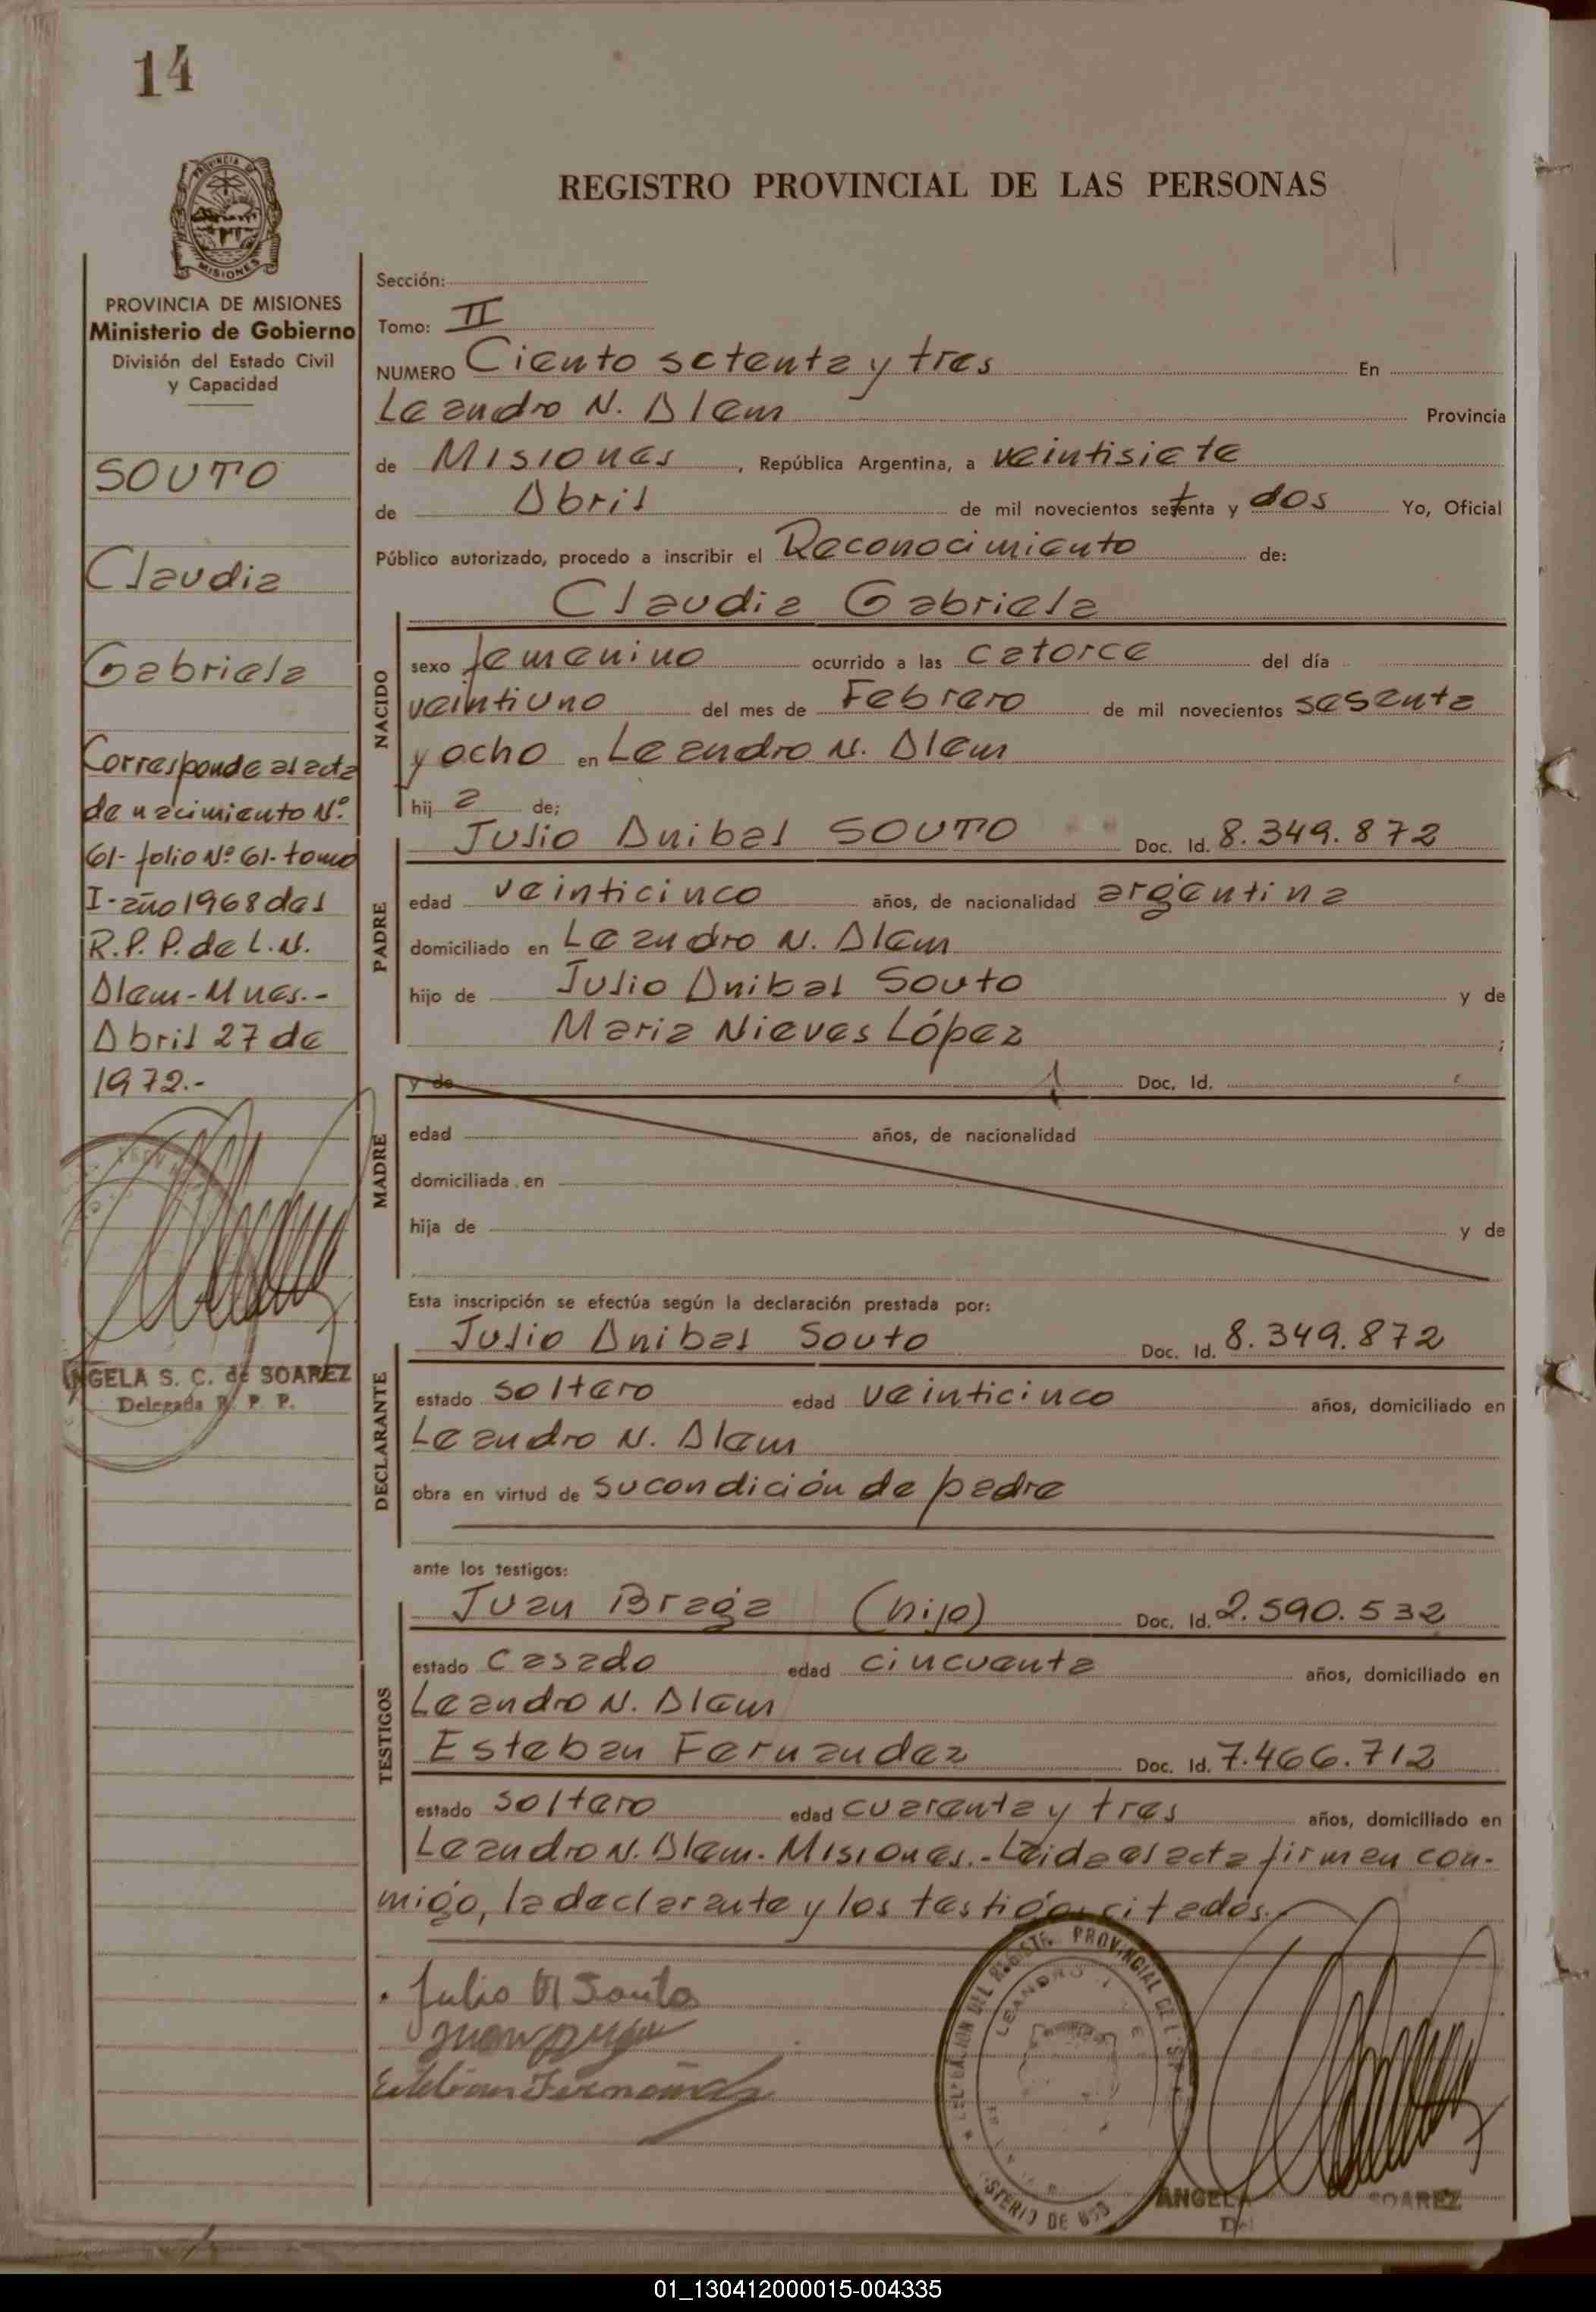 14
REGISTRO PROVINCIAL DE LAS PERSONAS
PROVINCIA DE
MISIONES
PROVINCIA DE MISIONES
Ministerio de Gobierno
División del Estado Civil
y Capacidad
SOUTO
Claudia
Gabriela
Corresponde al acta
de nacimiento Nº
61- folio Nº 61- tomo
I- año 1968 del
R.P.P. de L.N.
Alem - Mnes.-
Abril 27 de
1972.-
ANGELA S. C. de SOAREZ
Delegada R. P. P.
Sección:
Tomo: II
NUMERO Ciento setenta y tres En
Leandro N. Alem Provincia
de Misiones, República Argentina, a veintisiete
de Abril de mil novecientos setenta y dos Yo, Oficial
Público autorizado, procedo a inscribir el Reconocimiento de:
Claudia Gabriela
NACIDO
sexo femenino ocurrido a las catorce del día
veintiuno del mes de Febrero de mil novecientos sesenta
y ocho en Leandro N. Alem
hij a de;
PADRE
Julio Anibal SOUTO Doc. Id. 8.349.872
edad veinticinco años, de nacionalidad argentina
domiciliado en Leandro N. Alem
hijo de Julio Anibal Souto y de
Maria Nieves López ;
MADRE
y de Doc. Id.
edad años, de nacionalidad
domiciliada en
hija de y de
Esta inscripción se efectúa según la declaración prestada por:
DECLARANTE
Julio Anibal Souto Doc. Id. 8.349.872
estado soltero edad veinticinco años, domiciliado en
Leandro N. Alem
obra en virtud de su condición de padre
ante los testigos:
TESTIGOS
Juan Braga (hijo) Doc. Id. 2.590.532
estado casado edad cincuenta años, domiciliado en
Leandro N. Alem
Esteban Fernandez Doc. Id. 7.466.712
estado soltero edad cuarenta y tres años, domiciliado en
Leandro N. Alem. Misiones.- Leida el acta firman con-
migo, la declarante y los testigos citados.-
Julio A Souto
Esteban Fernandez
DELEGACION DEL REGISTR. PROVINCIAL DE L
LEANDRO
ANGELA SOAREZ
Del
01_130412000015-004335